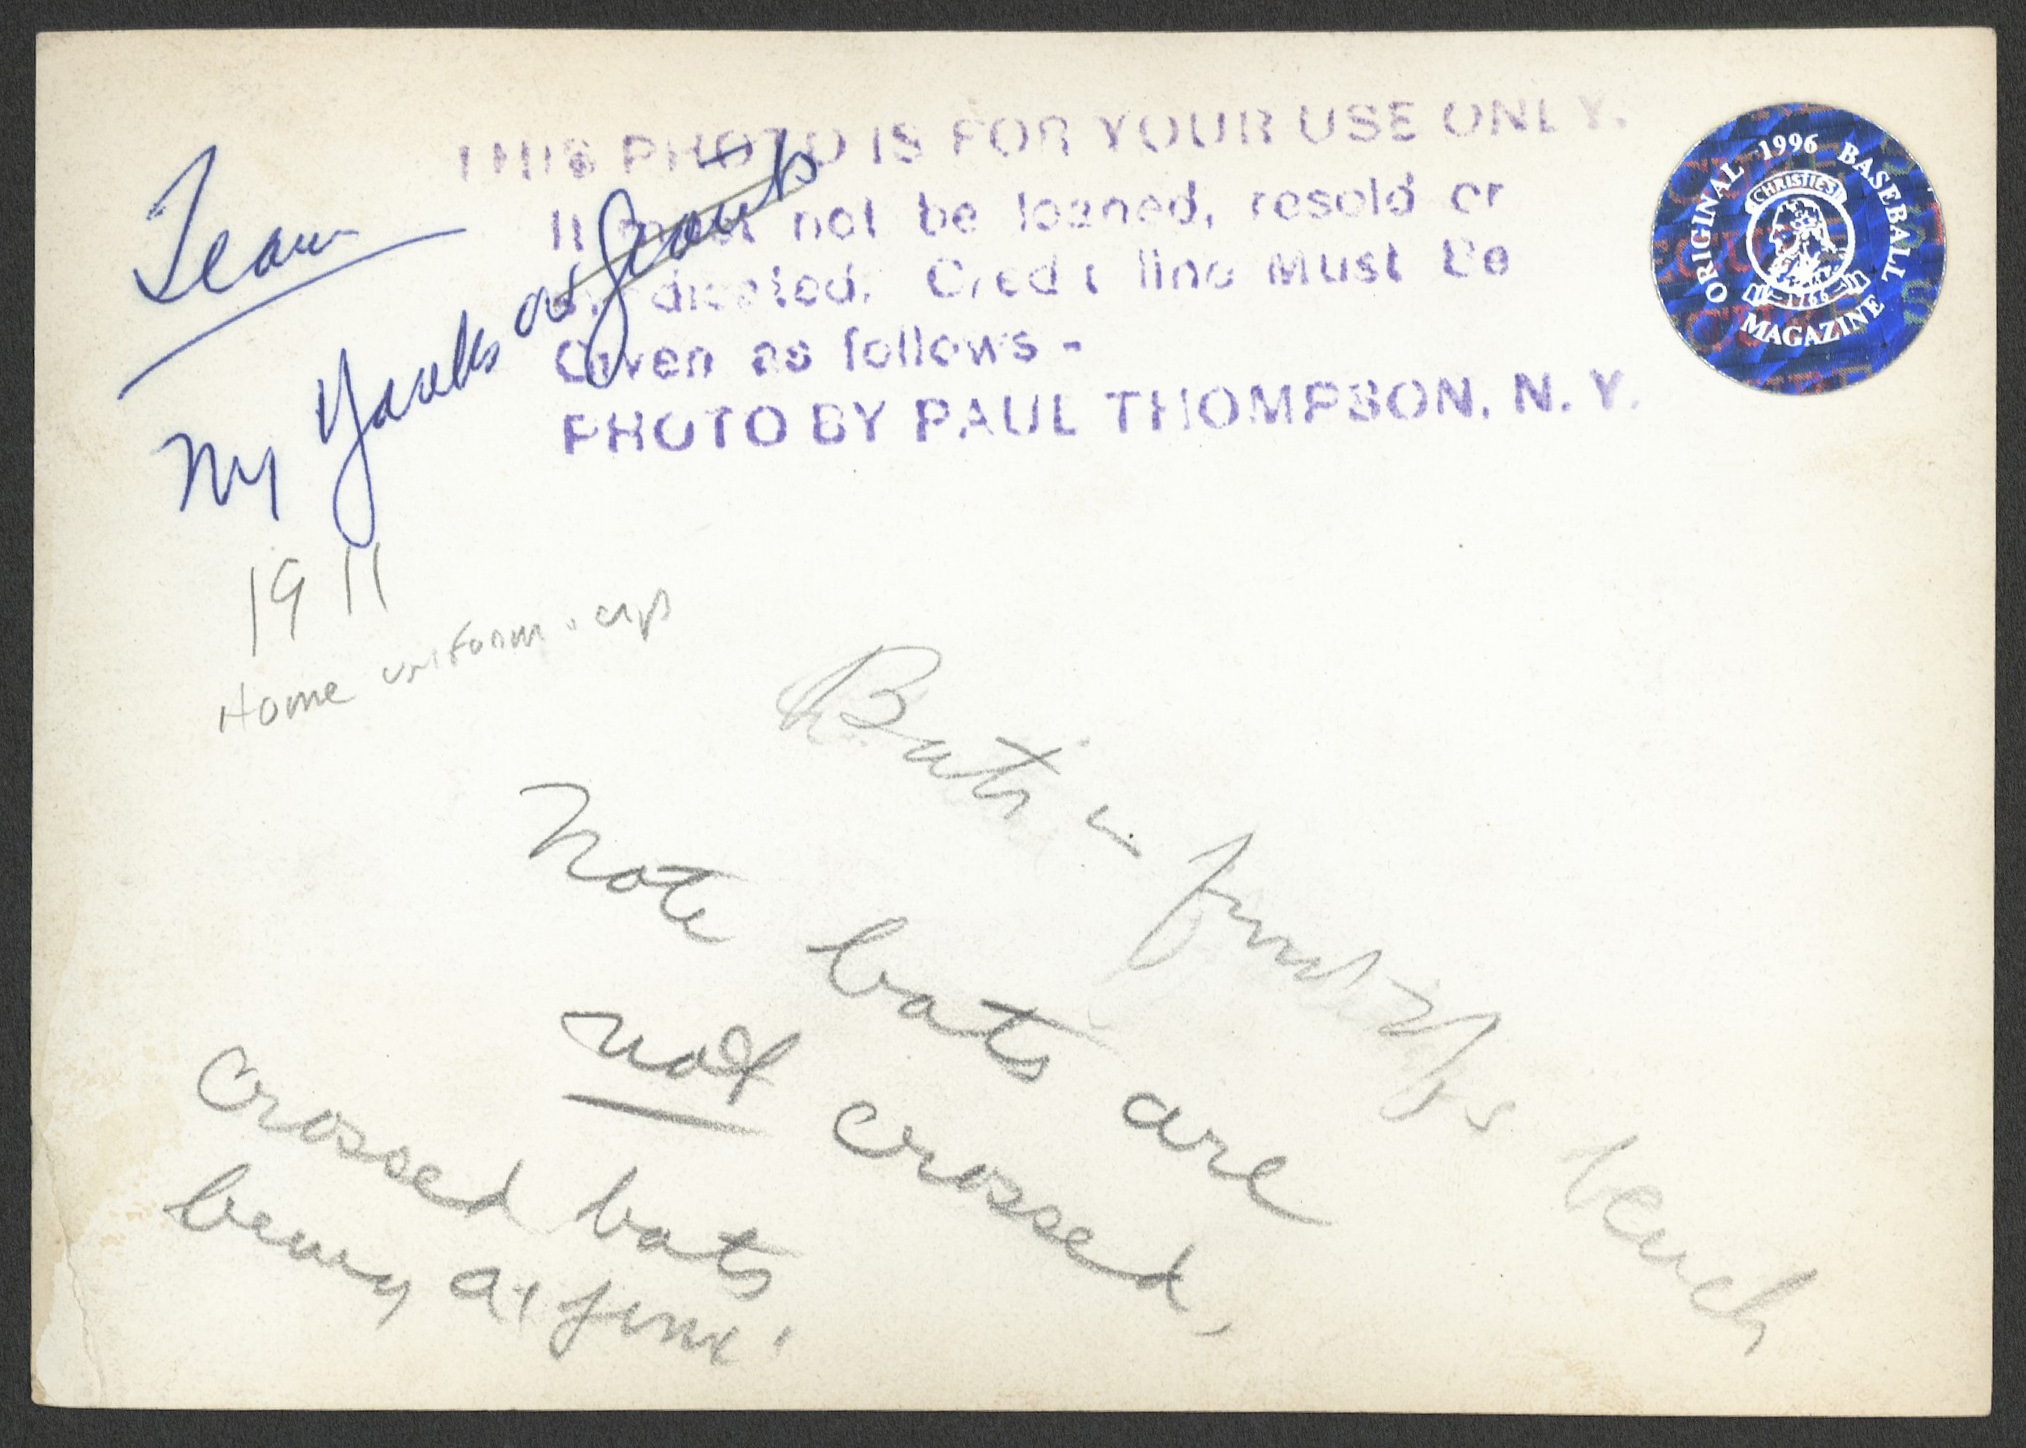 THIS PHOTO IS FOR YOUR USE ONLY.
It must not be loaned, resold or
syndicated. Credit line Must Be
Given as follows -
PHOTO BY PAUL THOMPSON, N. Y.
ORIGINAL 1996 BASEBALL MAGAZINE
CHRISTIE'S
1766
Team
NY Yanks or Giants
1911
Home uniform · cap
Bats in front of bench
Note bats are
not crossed,
Crossed bats
being a jinx.